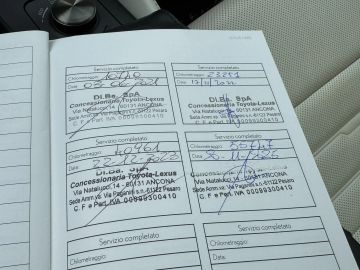 Servizio completato
Chilometraggio:
Data
DI.Ba. SpA
Concessionaria Toyota-Lexus
Via Natalucci,14 - 60131 ANCONA
Sede Amm.va: Via Paganini s.n.-61122 Pesaro
C.F e Part. IVA 00989300410
Servizio completato
Chilometraggio: 23251
Data
DI.Ba. SpA
Concessionaria Toyota-Lexus
Via Natalucci,14 - 60131 ANCONA
Sede Amm.va: Via Paganini s.n.-61122 Pesaro
C.F e Part. IVA 00989300410
Servizio completato
Chilometraggio: 40961
Data 22-12-2023
DI.Ba. SpA
Concessionaria Toyota-Lexus
Via Natalucci,14 - 60131 ANCONA
Sede Amm.va: Via Paganini s.n.-61122 Pesaro
C.F e Part. IVA 00989300410
Servizio completato
Chilometraggio:
Data
DI.Ba. SpA
Concessionaria Toyota-Lexus
Via Natalucci,14 - 60131 ANCONA
Sede Amm.va: Via Paganini s.n.-61122 Pesaro
C.F e Part. IVA 00989300410
Servizio completato
Chilometraggio:
Servizio completato